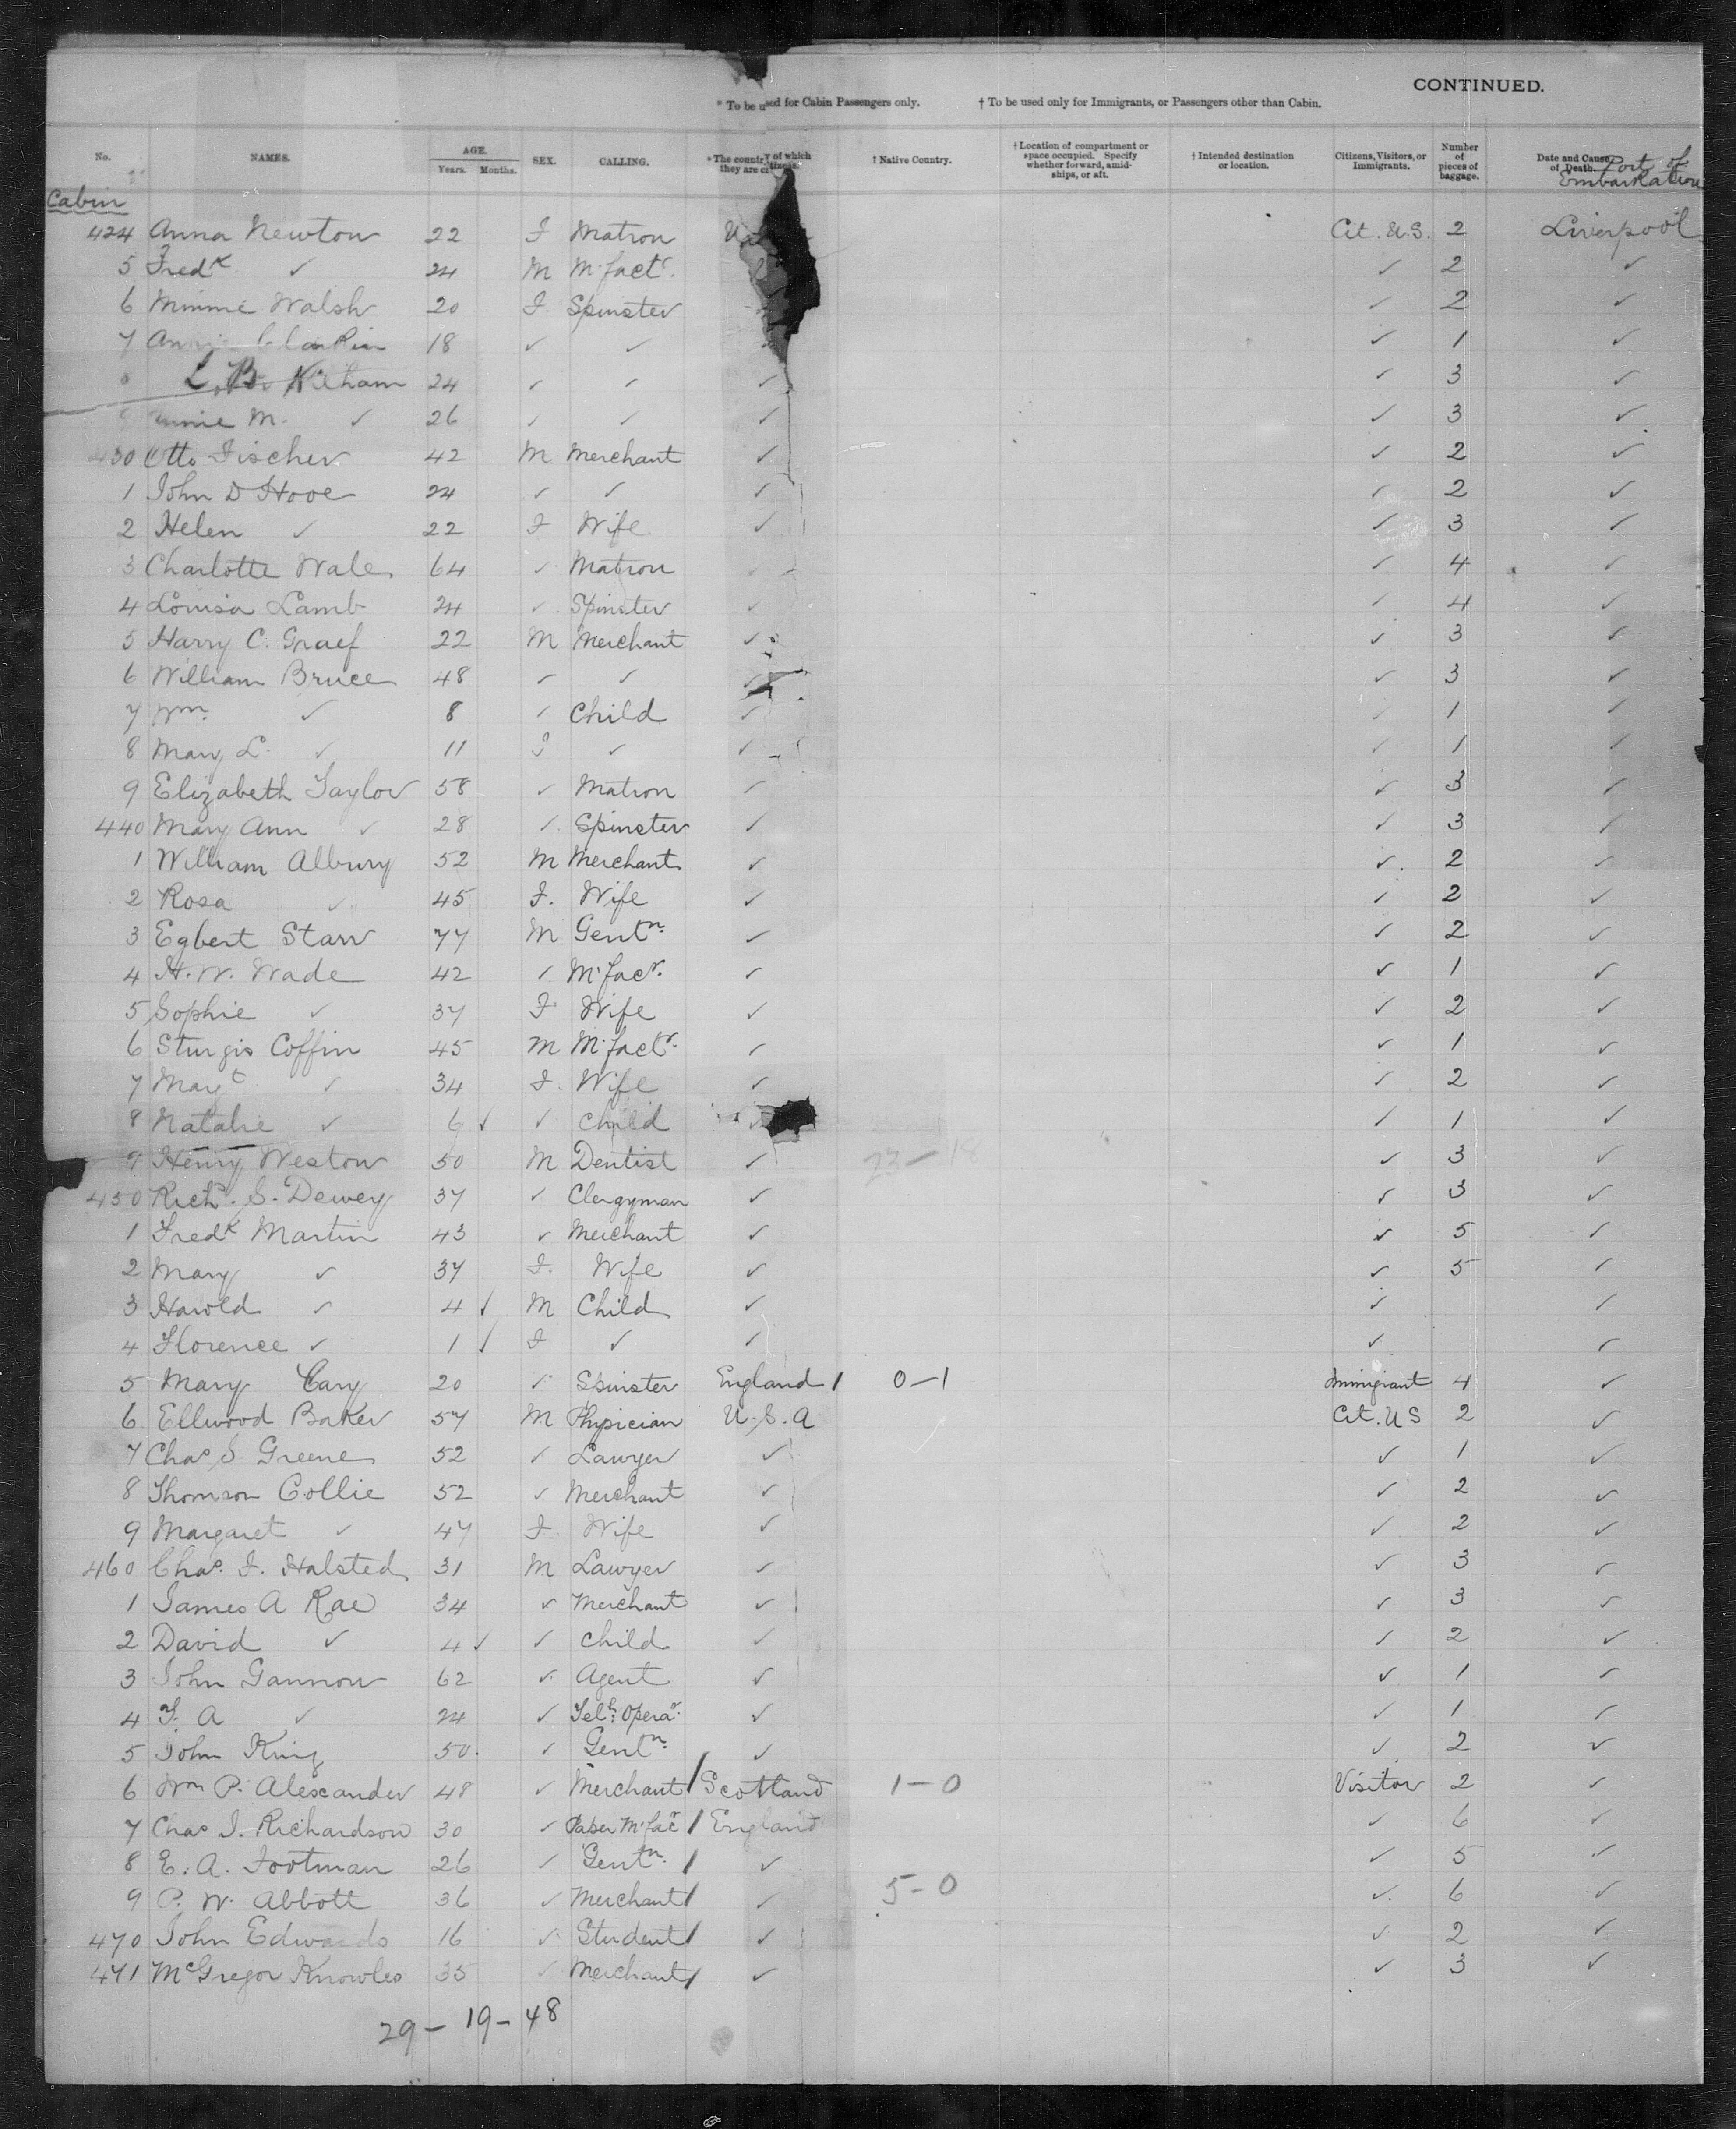 CONTINUED.
* To be used for Cabin Passengers only. † To be used only for Immigrants, or Passengers other than Cabin.
No. NAMES. AGE. Years. Months. SEX. CALLING. * The country of which they are citizens. † Native Country. † Location of compartment or space occupied. Specify whether forward, amidships, or aft. † Intended destination or location. Citizens, Visitors, or Immigrants. Number of pieces of baggage. Date and Cause of Death. Port of Embarkation
Cabin
424 Anna Newton 22 F Matron U Cit. U.S. 2 Liverpool
5 Fredk ✓ 24 M M'factr. ✓ 2 ✓
6 Minnie Walsh 20 F. Spinster ✓ 2 ✓
7 18 ✓ ✓ ✓ 1 ✓
L. B. Kitham 24 ✓ ✓ ✓ ✓ 3 ✓
M. ✓ 26 ✓ ✓ ✓ ✓ 3 ✓
430 Otto Fischer 42 M Merchant ✓ ✓ 2 ✓
1 John D Hooe 24 ✓ ✓ ✓ ✓ 2 ✓
2 Helen ✓ 22 F Wife ✓ ✓ 3 ✓
3 Charlotte Wales 64 ✓ Matron ✓ ✓ 4 ✓
4 Louisa Lamb 24 ✓ Spinster ✓ ✓ 4 ✓
5 Harry C. Graef 22 M Merchant ✓ ✓ 3 ✓
6 William Bruce 48 ✓ ✓ ✓ ✓ 3 ✓
7 Wm. ✓ 8 ✓ Child ✓ ✓ 1 ✓
8 Mary L. ✓ 11 F ✓ ✓ ✓ 1 ✓
9 Elizabeth Taylor 58 ✓ Matron ✓ ✓ 3 ✓
440 Mary Ann ✓ 28 ✓ Spinster ✓ ✓ 3 ✓
1 William Albury 52 M Merchant ✓ ✓ 2 ✓
2 Rosa ✓ 45 F. Wife ✓ ✓ 2 ✓
3 Egbert Starr 77 M Gentn. ✓ ✓ 2 ✓
4 H. W. Wade 42 ✓ M'facr. ✓ ✓ 1 ✓
5 Sophie ✓ 37 F Wife ✓ ✓ 2 ✓
6 Sturgis Coffin 45 M M'factr. ✓ ✓ 1 ✓
7 Margt ✓ 34 F. Wife ✓ ✓ 2 ✓
8 Natalie ✓ 6 ✓ ✓ Child ✓ ✓ 1 ✓
9 Henry Weston 50 M Dentist ✓ 23-18 ✓ 3 ✓
450 Richd. S. Dewey 37 ✓ Clergyman ✓ ✓ 3 ✓
1 Fredk Martin 43 ✓ Merchant ✓ ✓ 5 ✓
2 Mary ✓ 37 F. Wife ✓ ✓ 5 ✓
3 Harold ✓ 4 ✓ M Child ✓ ✓ ✓
4 Florence ✓ 1 ✓ F ✓ ✓ ✓ ✓
5 Mary Cary 20 ✓ Spinster England / 0-1 Immigrant 4 ✓
6 Ellwood Baker 57 M Physician U.S.A Cit. U S 2 ✓
7 Chas S. Greene 52 ✓ Lawyer ✓ ✓ 1 ✓
8 Thomson Collie 52 ✓ Merchant ✓ ✓ 2 ✓
9 Margaret ✓ 47 F. Wife ✓ ✓ 2 ✓
460 Chas. F. Halsted 31 M Lawyer ✓ ✓ 3 ✓
1 James A Rae 34 ✓ Merchant ✓ ✓ 3 ✓
2 David ✓ 4 ✓ ✓ Child ✓ ✓ 2 ✓
3 John Gannon 62 ✓ Agent ✓ ✓ 1 ✓
4 F. A ✓ 24 ✓ Telh. Operar. ✓ ✓ 1 ✓
5 John King 50. ✓ Gentn. ✓ ✓ 2 ✓
6 Wm P. Alexander 48 ✓ Merchant / Scotland 1-0 Visitor 2 ✓
7 Chas J. Richardson 30 ✓ Paper M'facr / England ✓ 6 ✓
8 E. A. Footman 26 ✓ Gentn. / ✓ ✓ 5 ✓
9 P. W. Abbott 36 ✓ Merchant / ✓ 5-0 ✓ 6 ✓
470 John Edwards 16 ✓ Student / ✓ ✓ 2 ✓
471 McGregor Knowles 35 ✓ Merchant / ✓ ✓ 3 ✓
29-19-48